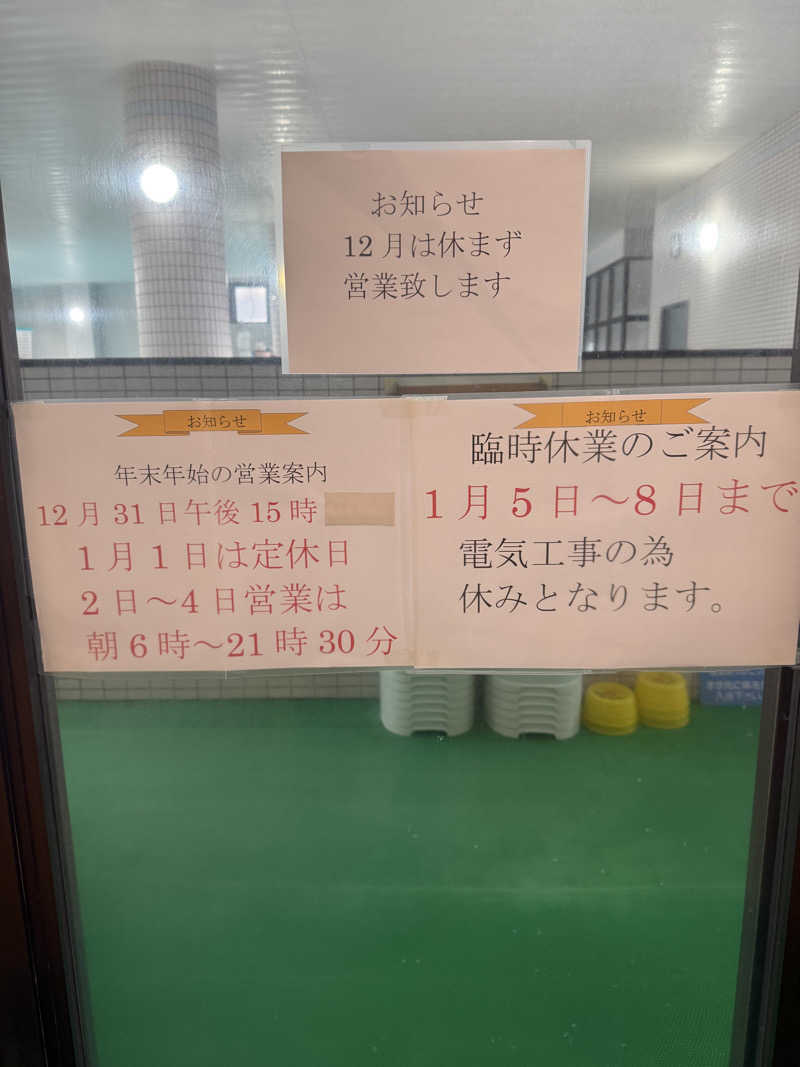 お知らせ
12月は休まず
営業致します
お知らせ
年末年始の営業案内
12月31日午後15時
1月1日は定休日
2日～4日営業は
朝6時～21時30分
お知らせ
臨時休業のご案内
1月5日～8日まで
電気工事の為
休みとなります。